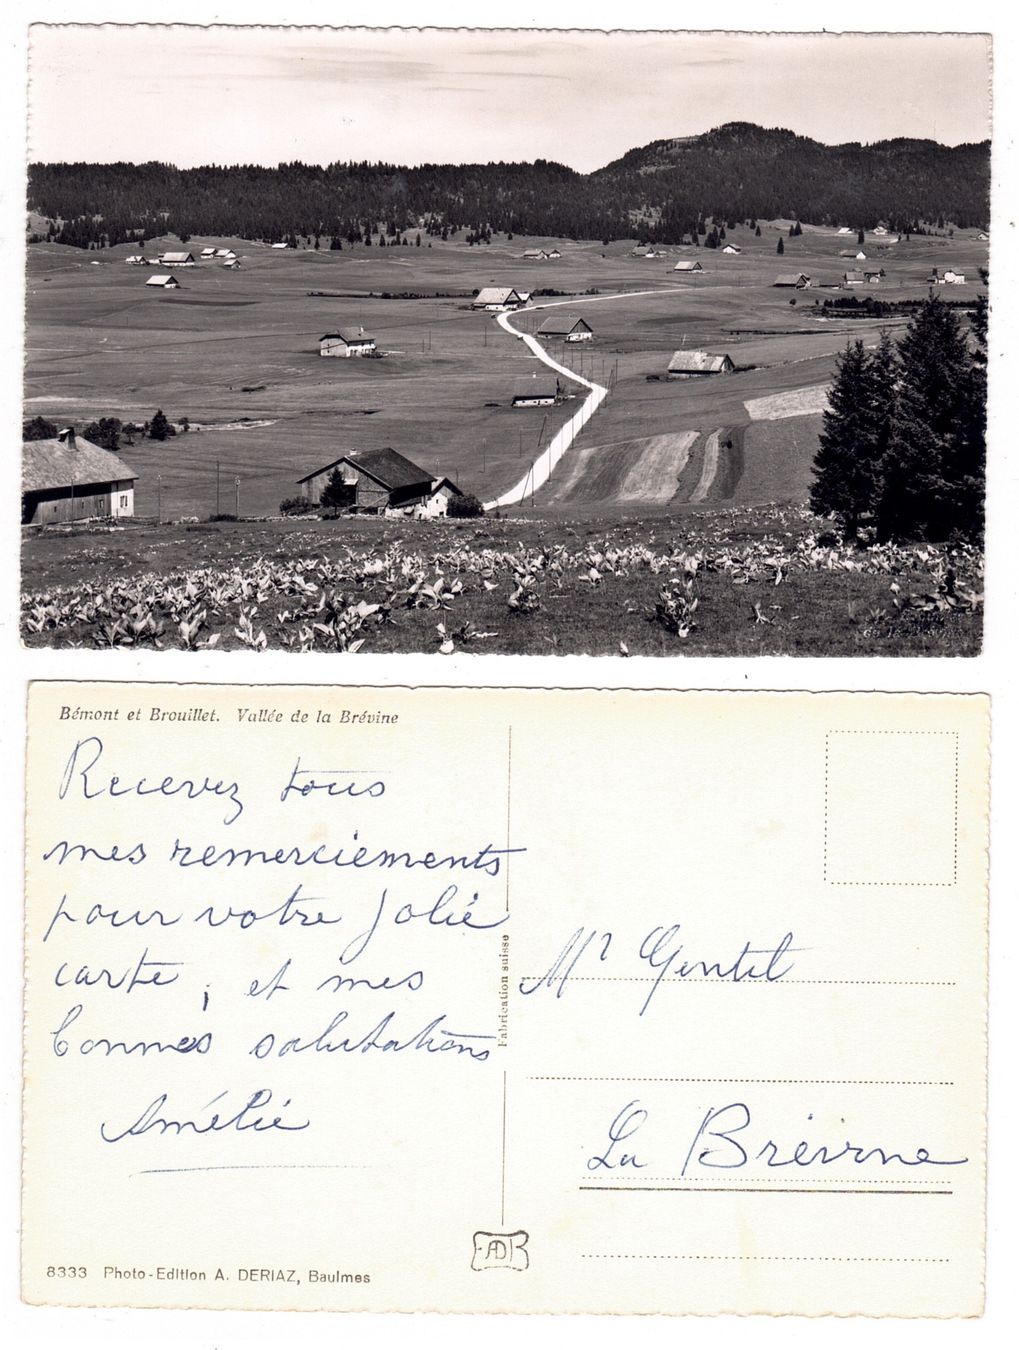 Bémont et Brouillet. Vallée de la Brévine
Recevez tous
mes remerciements
pour votre jolie
carte, et mes
bonnes salutations
Amélie
Fabrication suisse
Mr Gentil
La Brévine
8333 Photo-Edition A. DERIAZ, Baulmes